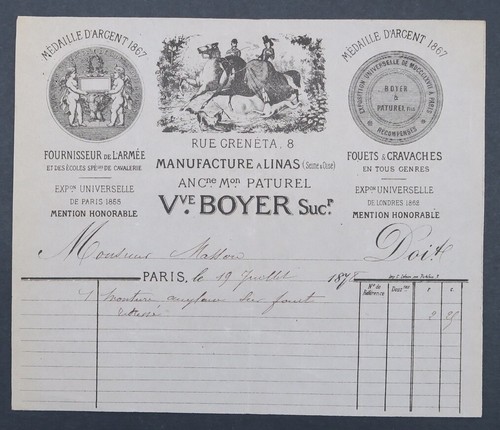 MÉDAILLE D'ARGENT 1867
MÉDAILLE D'ARGENT 1867
EXPOSITION UNIVERSELLE DE MDCCCLXVII À PARIS
BOYER
&
PATUREL
RÉCOMPENSES
RUE GRENETA, 8
MANUFACTURE A LINAS (Seine & Oise)
ANCNE MON PATUREL
VVE BOYER SUCR
FOURNISSEUR DE L'ARMÉE
ET DES ÉCOLES SPÉLES DE CAVALERIE
EXPON UNIVERSELLE
DE PARIS 1855
MENTION HONORABLE
FOUETS & CRAVACHES
EN TOUS GENRES
EXPON UNIVERSELLE
DE LONDRES 1862
MENTION HONORABLE
Monsieur Masson Doit
PARIS, le 19 Juillet 187
No de Référence
1 monture fouet
2 25